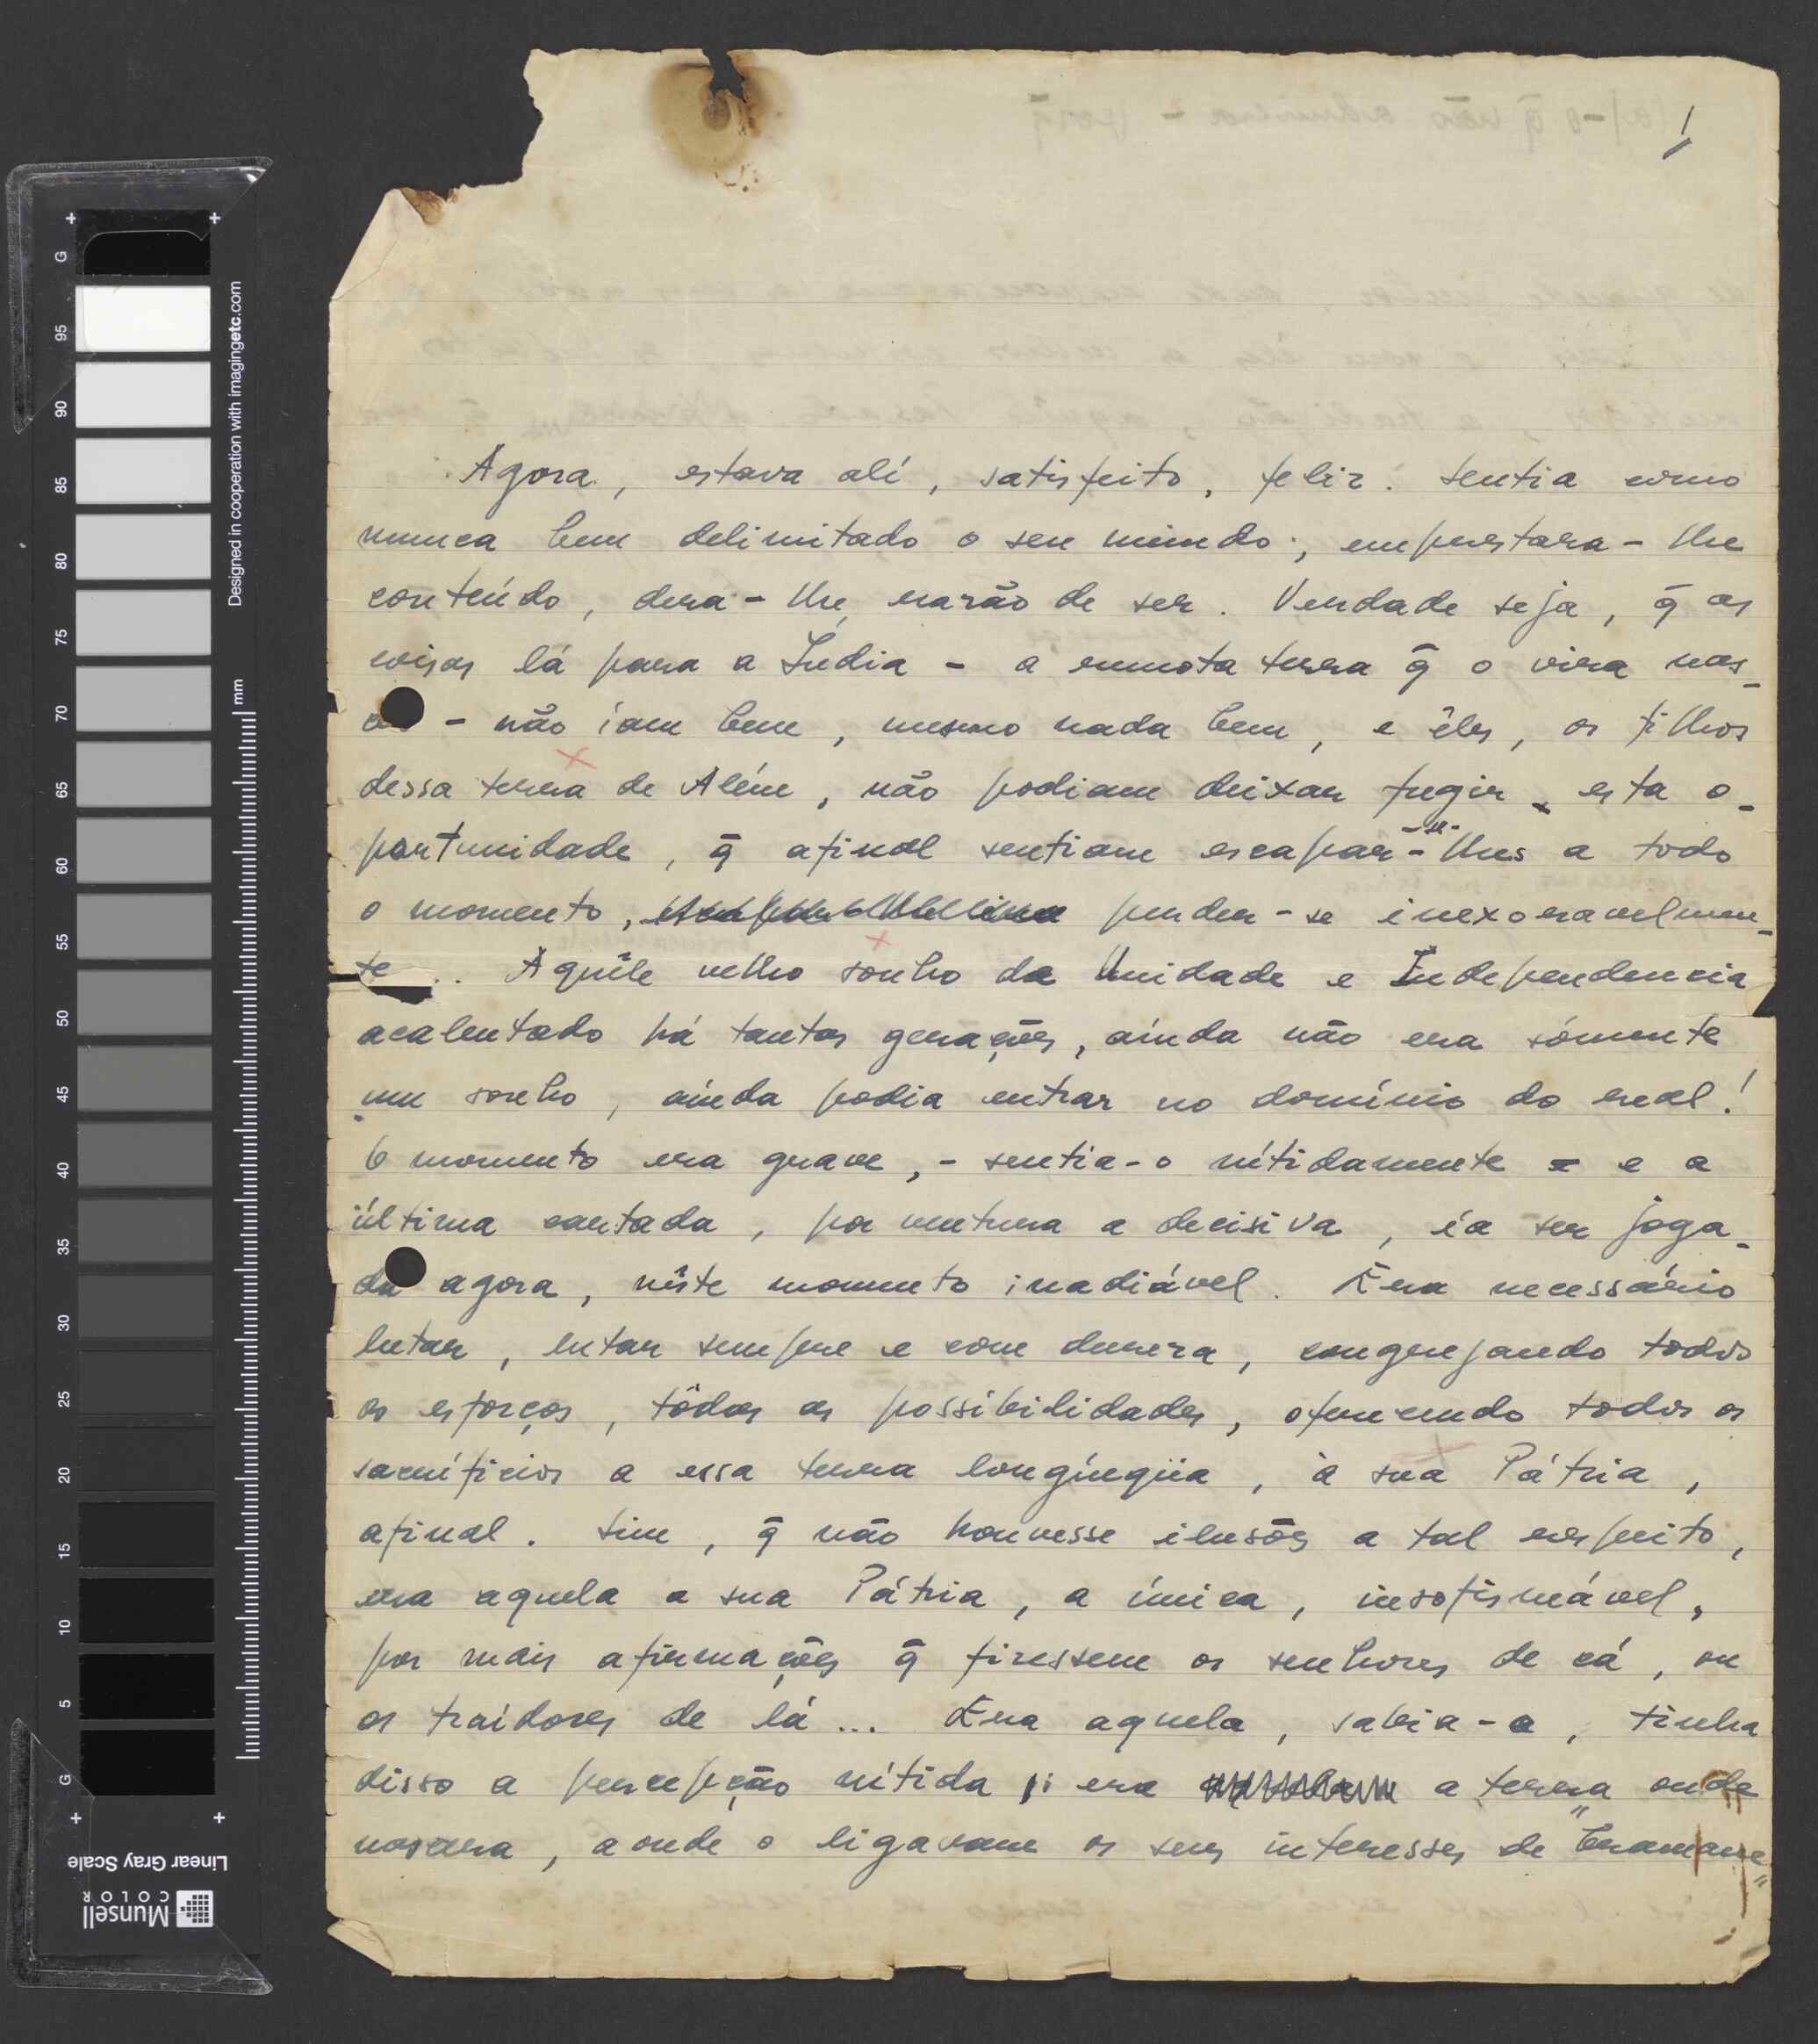 1
Agora, estava alí, satisfeito, feliz. Sentia como
nunca bem delimitado o seu mundo; emprestara-lhe
conteúdo, dera-lhe razão de ser. Verdade seja, q̃ as
coisas lá para a Índia - a remota terra q̃ o vira nas-
- não íam bem, mesmo nada bem, e êles, os filhos
dessa terra de Além, não podiam deixar fugir esta o-
portunidade, q̃ afinal sentiam escapar-se-lhes a todo
o momento, perder-se inexoravelmen-
te.. Aquêle velho sonho da Unidade e Independencia
acalentado há tantas gerações, aínda não era sómente
um sonho, aínda podia entrar no domínio do real!
O momento era grave, - sentia-o nítidamente - e a
última cartada, por ventura a decisiva, ía ser joga-
da agora, nêste momento inadiável. Era necessário
lutar, lutar sempre e com dureza, congregando todos
os esforços, tôdas as possibilidades, oferecendo todos os
sacrifícios a essa terra longínqüa, à sua Pátria,
afinal. Sim, q̃ não houvesse ilusões a tal respeito,
era aquela a sua Pátria, a única, insofismável,
por mais afirmações q̃ fizessem os senhores de cá, ou
os traídores de lá... Era aquela, sabia-o, tinha
disso a percepção nítida; era a terra onde
nascera, aonde o ligavam os seus interesses de "bramane"
Designed in cooperation with imagingetc.com
mm
G 95 90 85 80 75 70 65 60 55 50 45 40 35 30 25 20 15 10 5 G
Linear Gray Scale
Munsell
COLOR